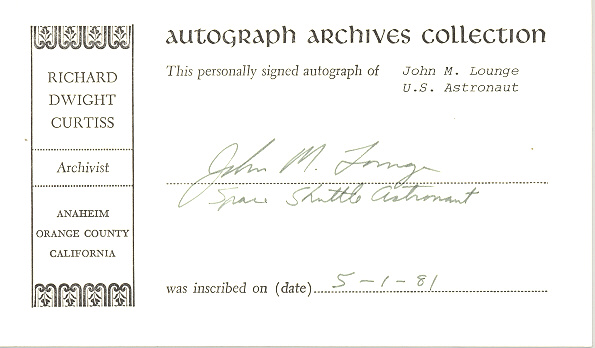 AUTOGRAPH ARCHIVES COLLECTION
RICHARD
DWIGHT
CURTISS
Archivist
ANAHEIM
ORANGE COUNTY
CALIFORNIA
This personally signed autograph of John M. Lounge
U.S. Astronaut
John M. Lounge
Space Shuttle Astronaut
was inscribed on (date) 5-1-81